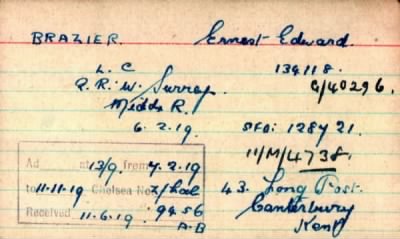 BRAZIER. Ernest Edward.
L. C 134118.
Q. R. W. Surrey G/40296.
Middx R.
6. 2. 19. SFO: 12847 21.
11/M/4738.
Ad at 13/9. from 7. 2. 19
to 11-11-19 Chelsea No. 43. Long Port
Received 11. 6. 19. 9456 Canterbury
A-B Kent